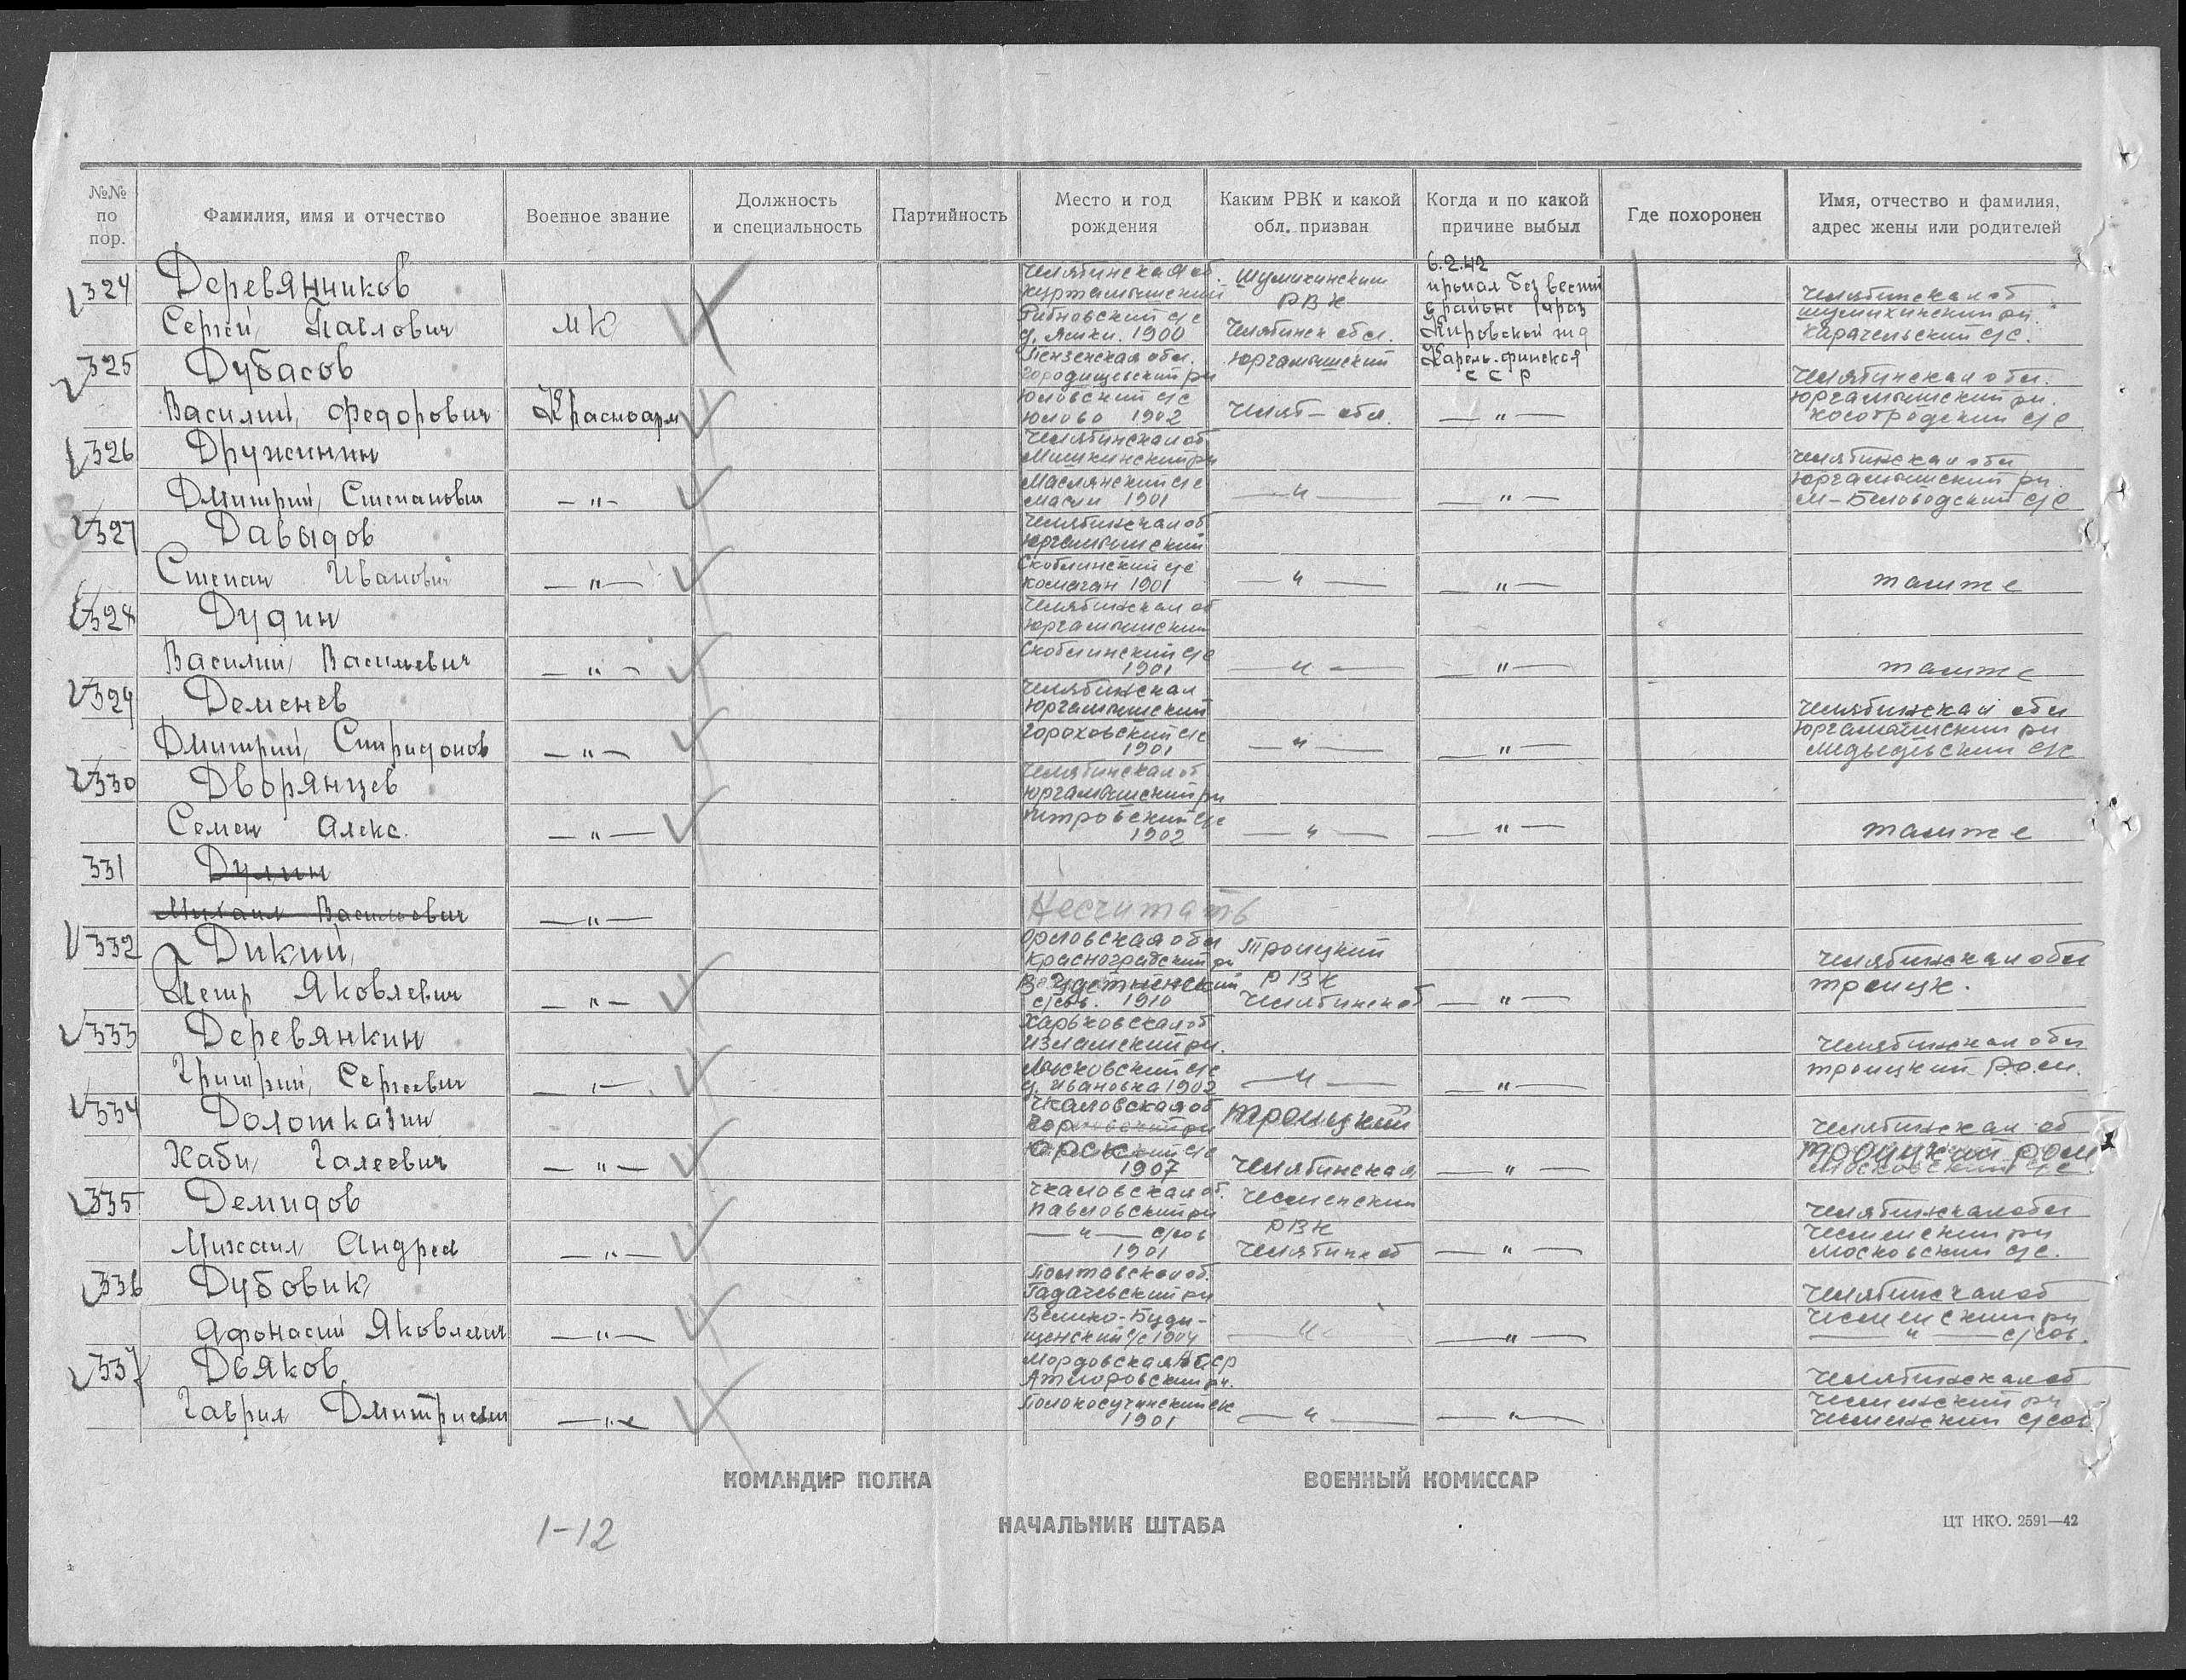 №№ по пор.
Фамилия, имя и отчество
Военное звание
Должность и специальность
Партийность
Место и год рождения
Каким РВК и какой обл. призван
Когда и по какой причине выбыл
Где похоронен
Имя, отчество и фамилия, адрес жены или родителей
324 Деревянников Челябинская об. Шумихинский 6.2.42
Куртамышский РВК пропал без вести Челябинская об
Сергей Павлович МК с/с Челябинск обл. в районе Шумихинский рн.
1900 Кировской жд Карачельский с/с.
325 Дубасов Пензенская обл. Юргамышский Карело-финская
Городищевский рн ССР Челябинская обл.
Василий Федорович Красноарм Юловский с/с Челяб-обл. —"— Юргамышский рн.
Юлово 1902 Косогродский с/с
326 Дружинин Челябинская об
Мишкинский рн Челябинская обл
Дмитрий Степанович —"— Маслянский с/с —"— —"— Юргамышский рн.
Масли 1901 М-Беловодский с/с
327 Давыдов Челябинская об
Юргамышский
Степан Иванович —"— Скоблинский с/с —"— —"— также
1901
328 Дудин Челябинская об
Юргамышский
Василий Васильевич —"— Скоблинский с/с —"— —"— также
1901
329 Деменев Челябинская
Юргамышский Челябинская обл
Дмитрий Спиридонов —"— Гороховский с/с —"— —"— Юргамышский рн
1901 с/с
330 Дворянцев Челябинская об
Юргамышский рн
Семен Алекс. —"— Петровский с/с —"— —"— также
1902
331 Дулин
Михаил Васильевич —"— Несчитать
332 Дикий Орловская обл Троицкий
Красноградский рн РВК Челябинская обл
Петр Яковлевич —"— Челябинск об —"— Троицк.
с/сов. 1910
333 Деревянкин Харьковская об
рн. Челябинская обл
Григорий Сергеевич —"— с/с —"— —"— Троицкий
д. Ивановка 1902
334 Долотказин Чкаловская об Троицкий
Челябинская об
Хаби Галеевич —"— 1907 Челябинская —"— Троицкий
335 Демидов Чкаловская об. Чесменский
Павловский рн РВК Челябинская обл
Михаил Андреев —"— —"— с/сов Челябинск об —"— Чесменский рн
1901 Московский с/с.
336 Дубовик Полтавская об.
Гадачевский рн Челябинская об
Афонасий Яковлевич —"— Велико-Буди- —"— —"— Чесменский рн
щенский с/с 1904 —"— с/сов.
337 Дьяков Мордовская АССР
рн. Челябинская об
Гаврил Дмитриевич —"— 1901 —"— —"— Чесменский рн
Чесменский с/сов
КОМАНДИР ПОЛКА
ВОЕННЫЙ КОМИССАР
НАЧАЛЬНИК ШТАБА
ЦТ НКО. 2591—42
1-12